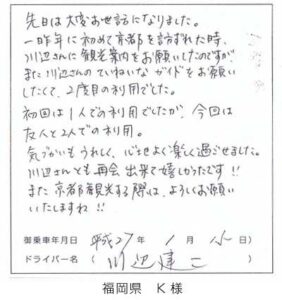 先日は大変お世話になりました。
一昨年に初めて京都を訪ずれた時、
川辺さんに観光案内をお願いしたのですが、
また川辺さんのていねいなガイドをお願い
したくて、2度目の利用でした。
初回は1人での利用でしたが、今回は
友人と2人での利用。
気づかいもうれしく、心地よく楽しく過ごせました。
川辺さんとも再会出来て嬉しかったです!!
また京都観光する際は、よろしくお願い
いたしますね!!
御乗車年月日 平成27年 1月 日)
ドライバー名( 川辺建二 )
福岡県 K 様